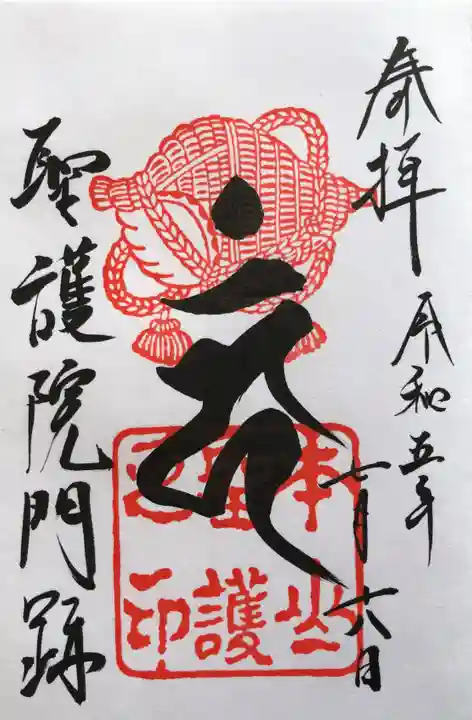 奉拝
令和五年
七月十六日
𑖮𑖳𑖽
本山
聖護
之印
聖護院門跡